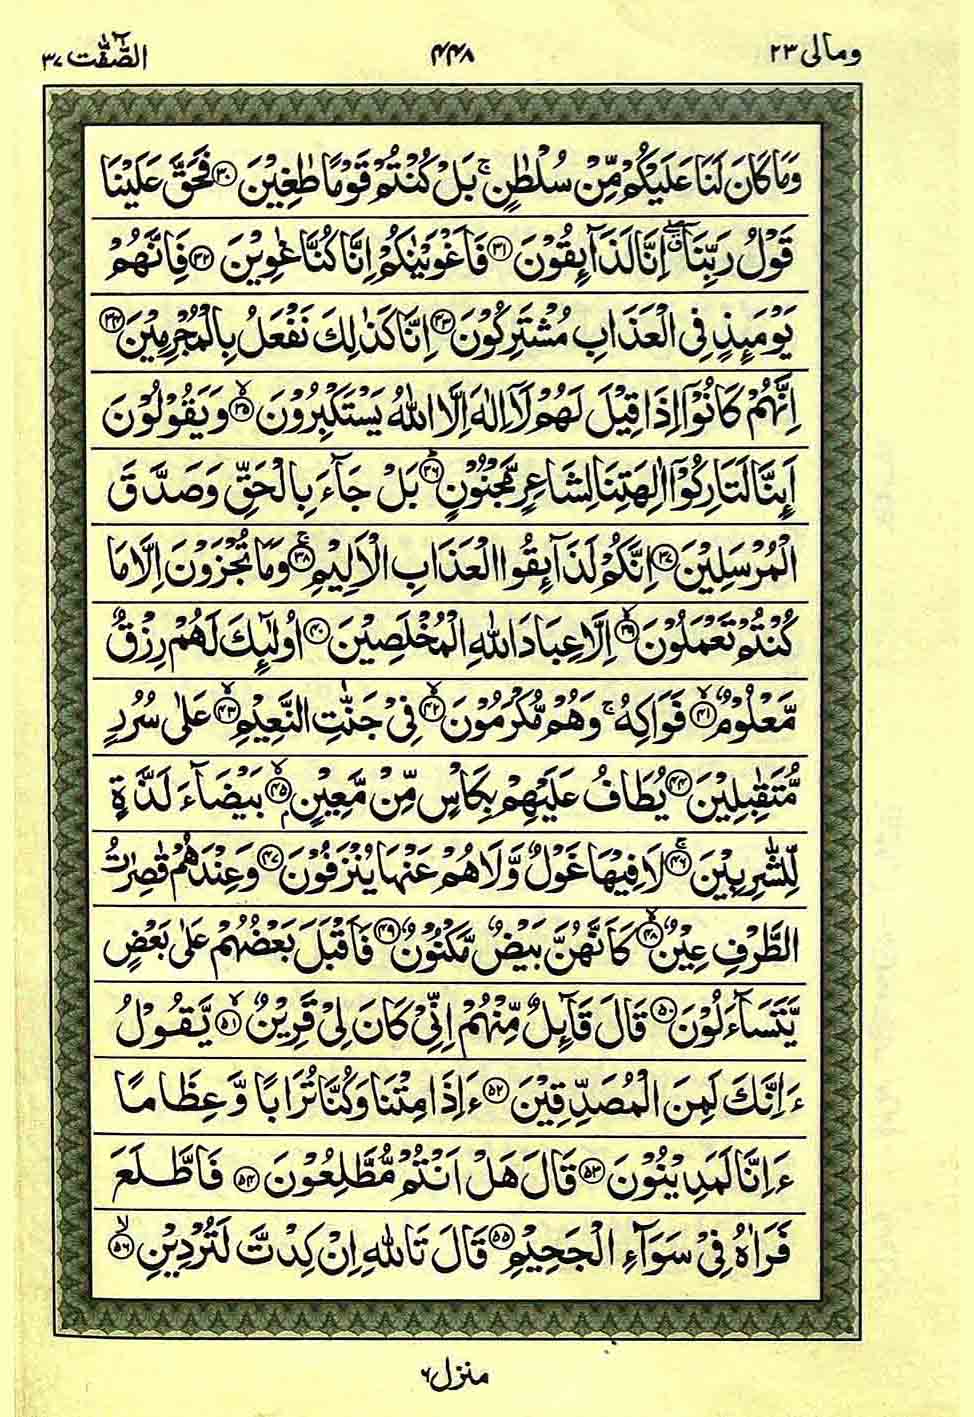 ومالی ۲۳
۴۴۸
الصّٰٓفّٰت ۳۷
وَمَا كَانَ لَنَا عَلَيْكُمْ مِّنْ سُلْطٰنٍ ۚ بَلْ كُنْتُمْ قَوْمًا طٰغِيْنَ ۝۳۰ فَحَقَّ عَلَيْنَا
قَوْلُ رَبِّنَاۤ ۖ اِنَّا لَذَآئِقُوْنَ ۝۳۱ فَاَغْوَيْنٰكُمْ اِنَّا كُنَّا غٰوِيْنَ ۝۳۲ فَاِنَّهُمْ
يَوْمَئِذٍ فِى الْعَذَابِ مُشْتَرِكُوْنَ ۝۳۳ اِنَّا كَذٰلِكَ نَفْعَلُ بِالْمُجْرِمِيْنَ ۝۳۴
اِنَّهُمْ كَانُوْۤا اِذَا قِيْلَ لَهُمْ لَاۤ اِلٰهَ اِلَّا اللّٰهُ يَسْتَكْبِرُوْنَ ۝۳۵ وَيَقُوْلُوْنَ
اَئِنَّا لَتَارِكُوْۤا اٰلِهَتِنَا لِشَاعِرٍ مَّجْنُوْنٍ ۝۳۶ بَلْ جَآءَ بِالْحَقِّ وَصَدَّقَ
الْمُرْسَلِيْنَ ۝۳۷ اِنَّكُمْ لَذَآئِقُوا الْعَذَابِ الْاَلِيْمِ ۝۳۸ وَمَا تُجْزَوْنَ اِلَّا مَا
كُنْتُمْ تَعْمَلُوْنَ ۝۳۹ اِلَّا عِبَادَ اللّٰهِ الْمُخْلَصِيْنَ ۝۴۰ اُولٰٓئِكَ لَهُمْ رِزْقٌ
مَّعْلُوْمٌ ۝۴۱ فَوَاكِهُ ۚ وَهُمْ مُّكْرَمُوْنَ ۝۴۲ فِىْ جَنّٰتِ النَّعِيْمِ ۝۴۳ عَلٰى سُرُرٍ
مُّتَقٰبِلِيْنَ ۝۴۴ يُطَافُ عَلَيْهِمْ بِكَاْسٍ مِّنْ مَّعِيْنٍۭ ۝۴۵ بَيْضَآءَ لَذَّةٍ
لِّلشّٰرِبِيْنَ ۝۴۶ لَا فِيْهَا غَوْلٌ وَّلَا هُمْ عَنْهَا يُنْزَفُوْنَ ۝۴۷ وَعِنْدَهُمْ قٰصِرٰتُ
الطَّرْفِ عِيْنٌ ۝۴۸ كَاَنَّهُنَّ بَيْضٌ مَّكْنُوْنٌ ۝۴۹ فَاَقْبَلَ بَعْضُهُمْ عَلٰى بَعْضٍ
يَّتَسَآءَلُوْنَ ۝۵۰ قَالَ قَآئِلٌ مِّنْهُمْ اِنِّىْ كَانَ لِىْ قَرِيْنٌ ۝۵۱ يَّقُوْلُ
ءَاِنَّكَ لَمِنَ الْمُصَدِّقِيْنَ ۝۵۲ ءَاِذَا مِتْنَا وَكُنَّا تُرَابًا وَّعِظَامًا
ءَاِنَّا لَمَدِيْنُوْنَ ۝۵۳ قَالَ هَلْ اَنْتُمْ مُّطَّلِعُوْنَ ۝۵۴ فَاطَّلَعَ
فَرَاٰهُ فِىْ سَوَآءِ الْجَحِيْمِ ۝۵۵ قَالَ تَاللّٰهِ اِنْ كِدْتَّ لَتُرْدِيْنِ ۝۵۶
منزل ۶